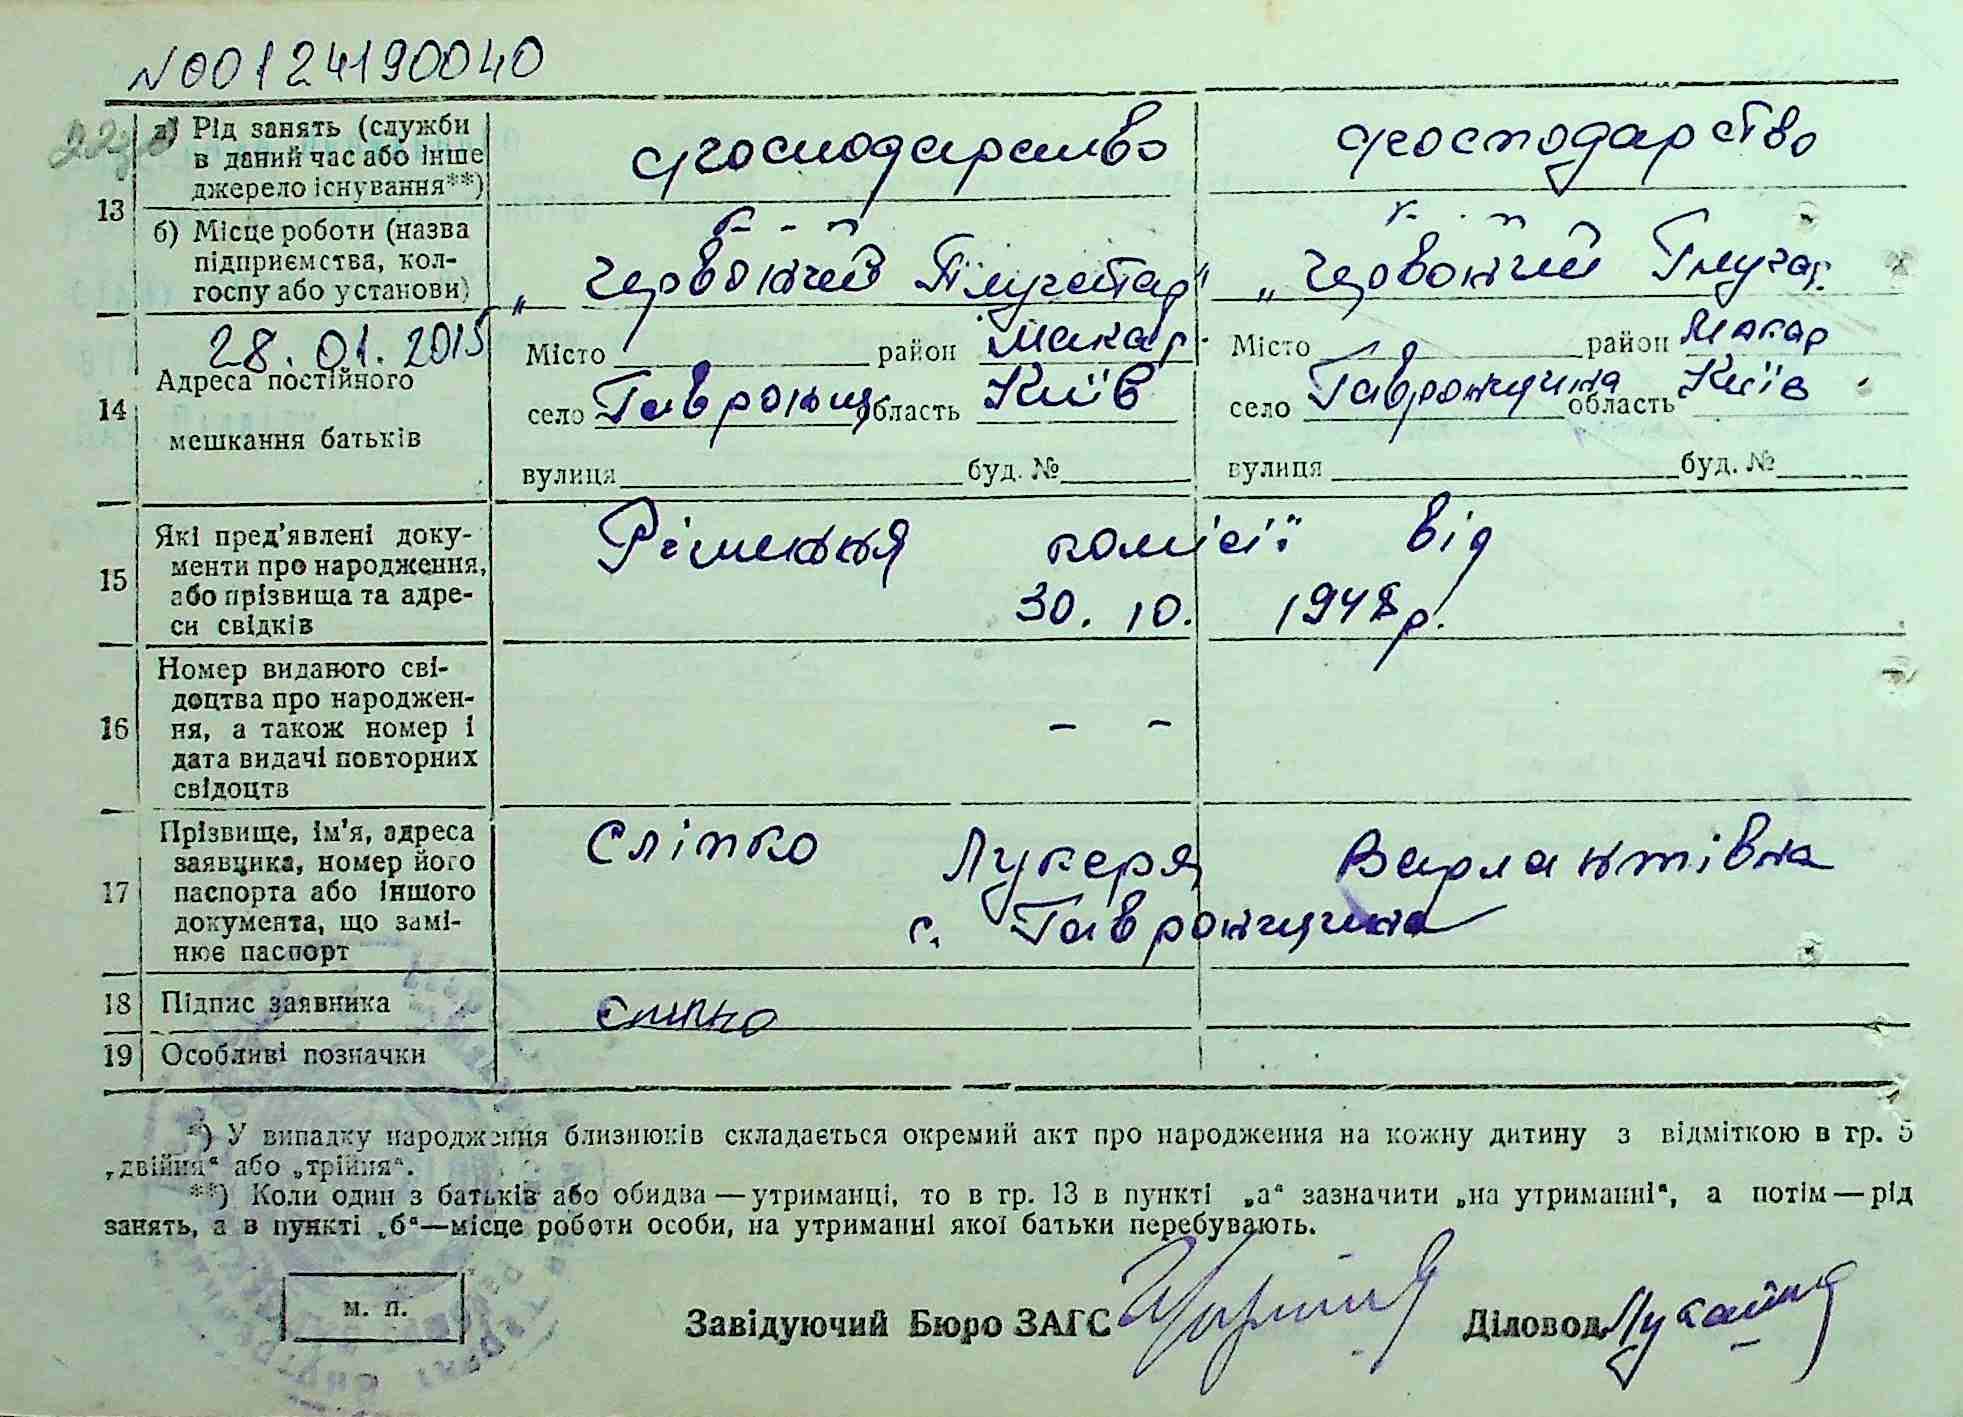 N00124190040
13 а) Рід занять (служби в даний час або інше джерело існування**) господарство господарство
б) Місце роботи (назва підприємства, колгоспу або установи) „Червоний Плугатар" „Червоний Плугат.
28.01.2015
14 Адреса постійного мешкання батьків
Місто район Макар. Місто район Макар
село Гавронщ. область Київ село Гавронщина область Київ
вулиця буд. № вулиця буд. №
15 Які пред'явлені документи про народження, або прізвища та адреси свідків Рішення комісії від
30. 10. 1948р.
16 Номер виданого свідоцтва про народження, а також номер і дата видачі повторних свідоцтв - -
17 Прізвище, ім'я, адреса заявника, номер його паспорта або іншого документа, що замінює паспорт Сліпко Лукеря Варлантівна
с. Гавронщина
18 Підпис заявника Сліпко
19 Особливі позначки
*) У випадку народження близнюків складається окремий акт про народження на кожну дитину з відміткою в гр. 5
„двійня" або „трійня".
**) Коли один з батьків або обидва — утриманці, то в гр. 13 в пункті „а" зазначити „на утриманні", а потім — рід
занять, а в пункті „б"—місце роботи особи, на утриманні якої батьки перебувають.
м. п.
Завідуючий Бюро ЗАГС Діловод